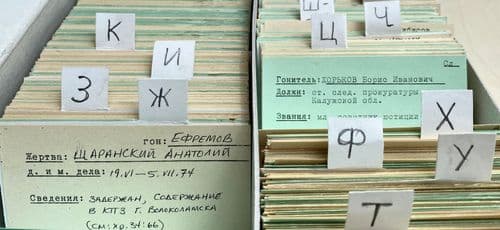 К
И
З
Ж
гон: ЕФРЕМОВ
Жертва: ЩАРАНСКИЙ АНАТОЛИЙ
д. и м. дела: 19.VI—5.VII.74
Сведения: ЗАДЕРЖАН, СОДЕРЖАНИЕ
В КПЗ Г. ВОЛОКОЛАМСКА
(СМ: ХР. 34: 66)
Ш-
Ч
Ц
Сл
Гонитель: ХОРЬКОВ Борис Иванович
Должн: ст. след. прокуратуры
Калужской обл.
Звания: мл. советник юстиции
Х
Ф
У
Т